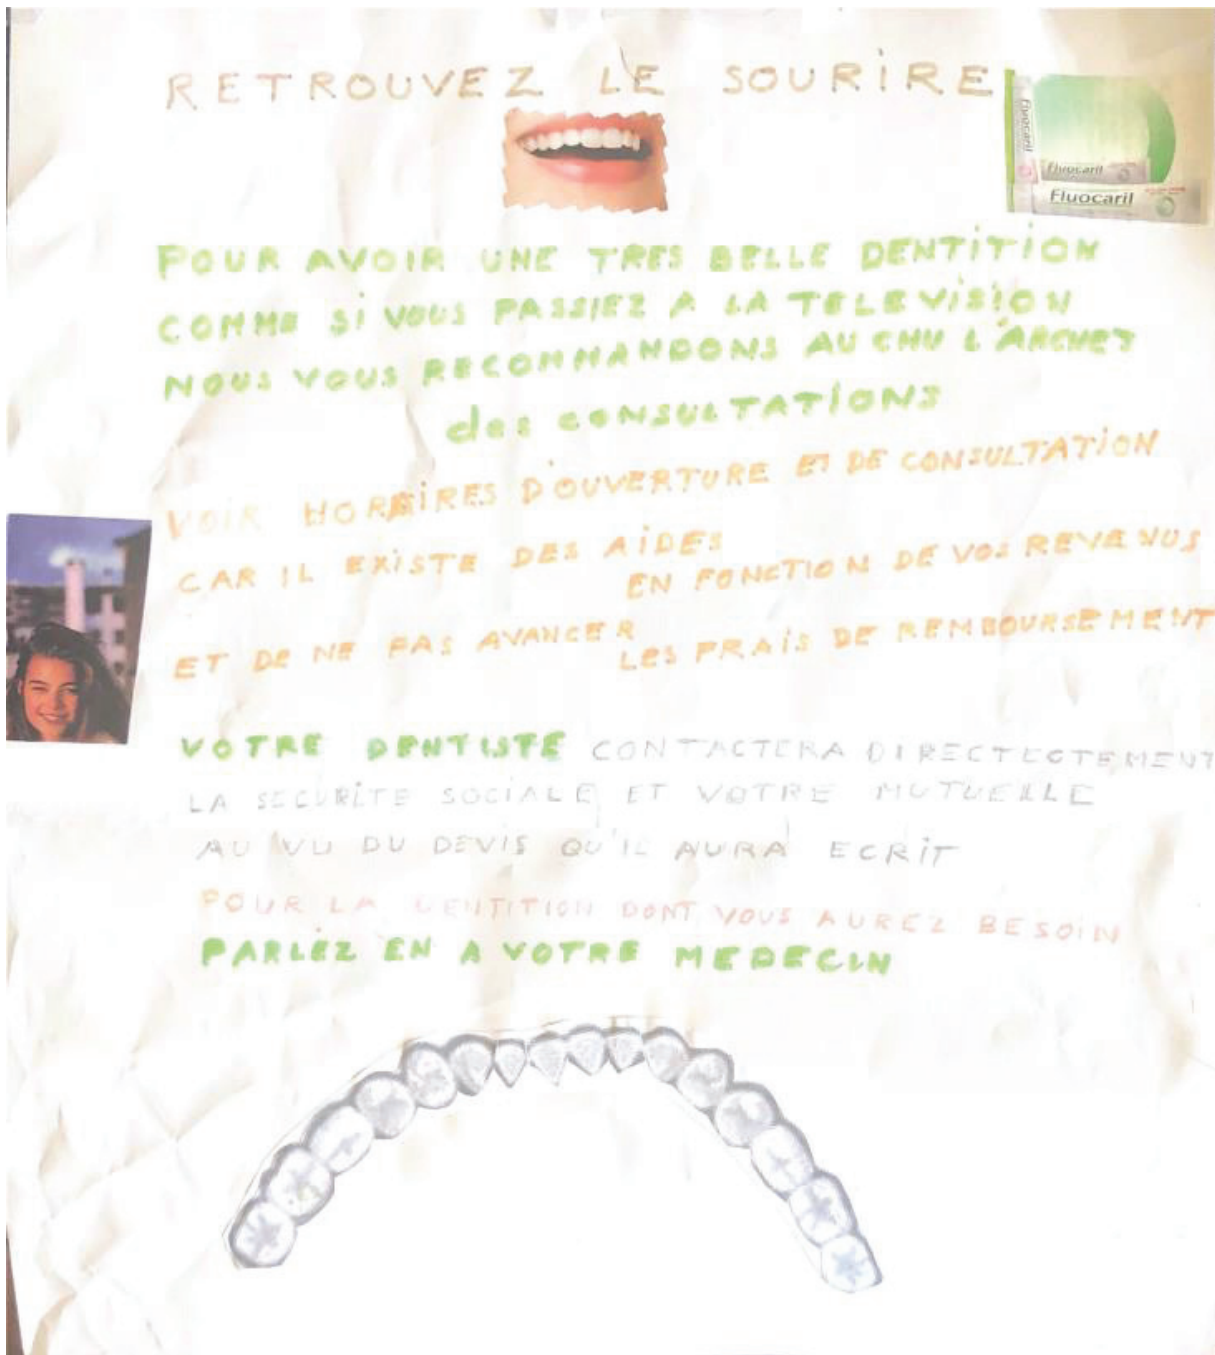 RETROUVEZ LE SOURIRE
Fluocaril
Fluocaril
Fluocaril
POUR AVOIR UNE TRES BELLE DENTITION
COMME SI VOUS PASSIEZ A LA TELEVISION
NOUS VOUS RECOMMANDONS AU CHU L'ARCHET
des CONSULTATIONS
VOIR HORAIRES D'OUVERTURE ET DE CONSULTATION
CAR IL EXISTE DES AIDES
EN FONCTION DE VOS REVENUS
ET DE NE PAS AVANCER
LES FRAIS DE REMBOURSEMENT
VOTRE DENTISTE CONTACTERA DIRECTECTEMENT
LA SECURITE SOCIALE ET VOTRE MUTUELLE
AU VU DU DEVIS QU'IL AURA ECRIT
POUR LA DENTITION DONT VOUS AUREZ BESOIN
PARLEZ EN A VOTRE MEDECIN